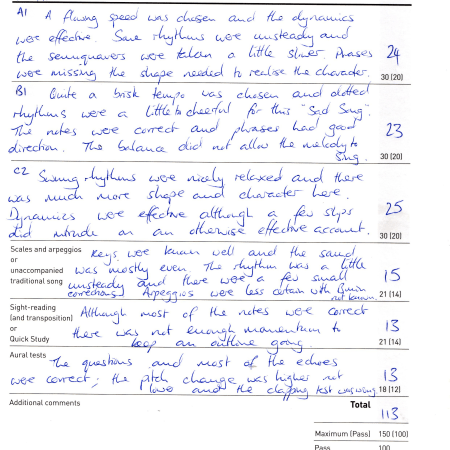 A1 A flowing speed was chosen and the dynamics
were effective. Some rhythms were unsteady and
the semiquavers were taken a little slower. Phrases 24
were missing the shape needed to realise the character. 30 (20)
B1 Quite a brisk tempo was chosen and dotted
rhythms were a little too cheerful for this "Sad Song".
The notes were correct and phrases had good 23
direction. The balance did not allow the melody to
sing. 30 (20)
C2 Swung rhythms were nicely relaxed and there
was much more shape and character here.
Dynamics were effective although a few slips 25
did intrude on an otherwise effective account. 30 (20)
Scales and arpeggios or unaccompanied traditional song
Keys were known well and the sound
was mostly even. The rhythm was a little
unsteady and there were a few small 15
corrections. Arpeggios were less certain with Bmin
not known. 21 (14)
Sight-reading (and transposition) or Quick Study
Although most of the notes were correct
there was not enough momentum to 13
keep an outline going. 21 (14)
Aural tests
The questions and most of the echoes
were correct; the pitch change was higher not 13
lower and the clapping test was wrong 18 (12)
Additional comments
Total
113
Maximum (Pass) 150 (100)
Pass 100